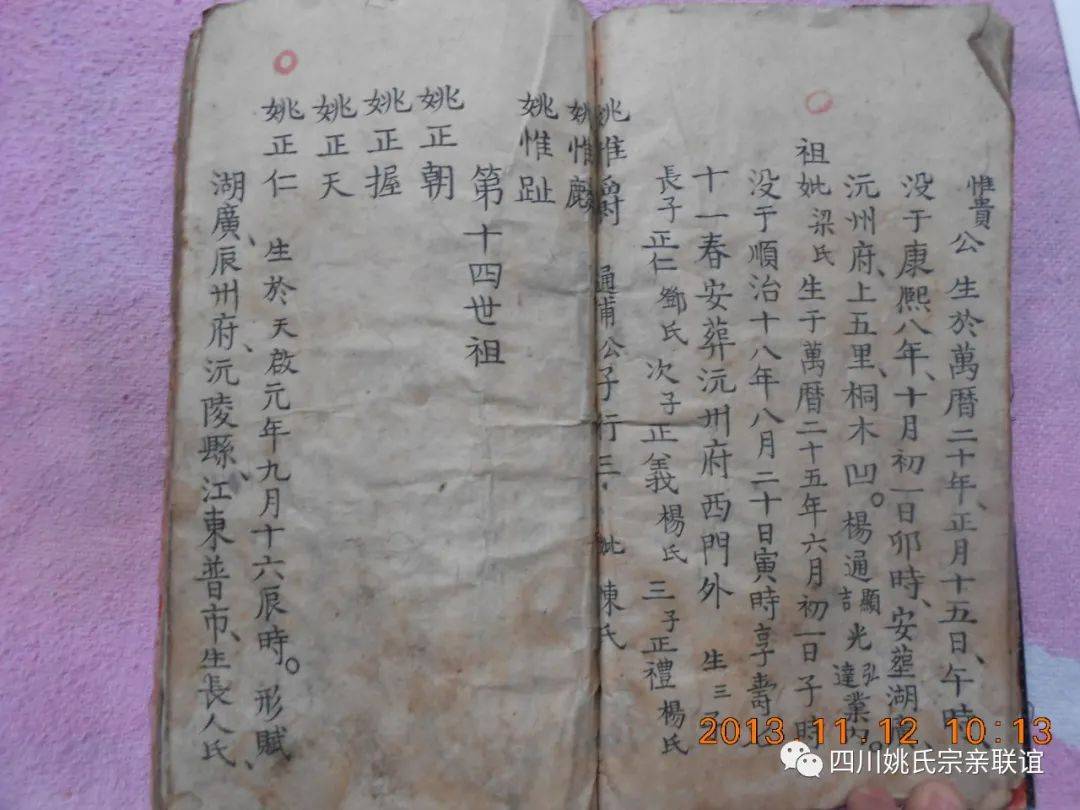 惟貴公 生於萬曆二十年、正月十五日、午時、
没于康熙八年、十月初一日卯時、安塟湖
沅州府、上五里、桐木凹。楊通顯吉光弘達業
祖妣梁氏生于萬曆二十五年六月初一日子時
没于順治十八年八月二十日寅時享壽
十一春安葬沅州府西門外 生三子
長子正仁鄧氏 次子正義楊氏 三子正禮楊氏
姚惟爵 通甫公子行三 妣陳氏
姚惟麒
姚惟趾
第十四世祖
姚正朝
姚正握
姚正天
姚正仁 生於天啟元年九月十六辰時。形賦
湖廣、辰州府、沅陵縣、江東普市、生長人氏、
2013.11.12 10:13
四川姚氏宗亲联谊